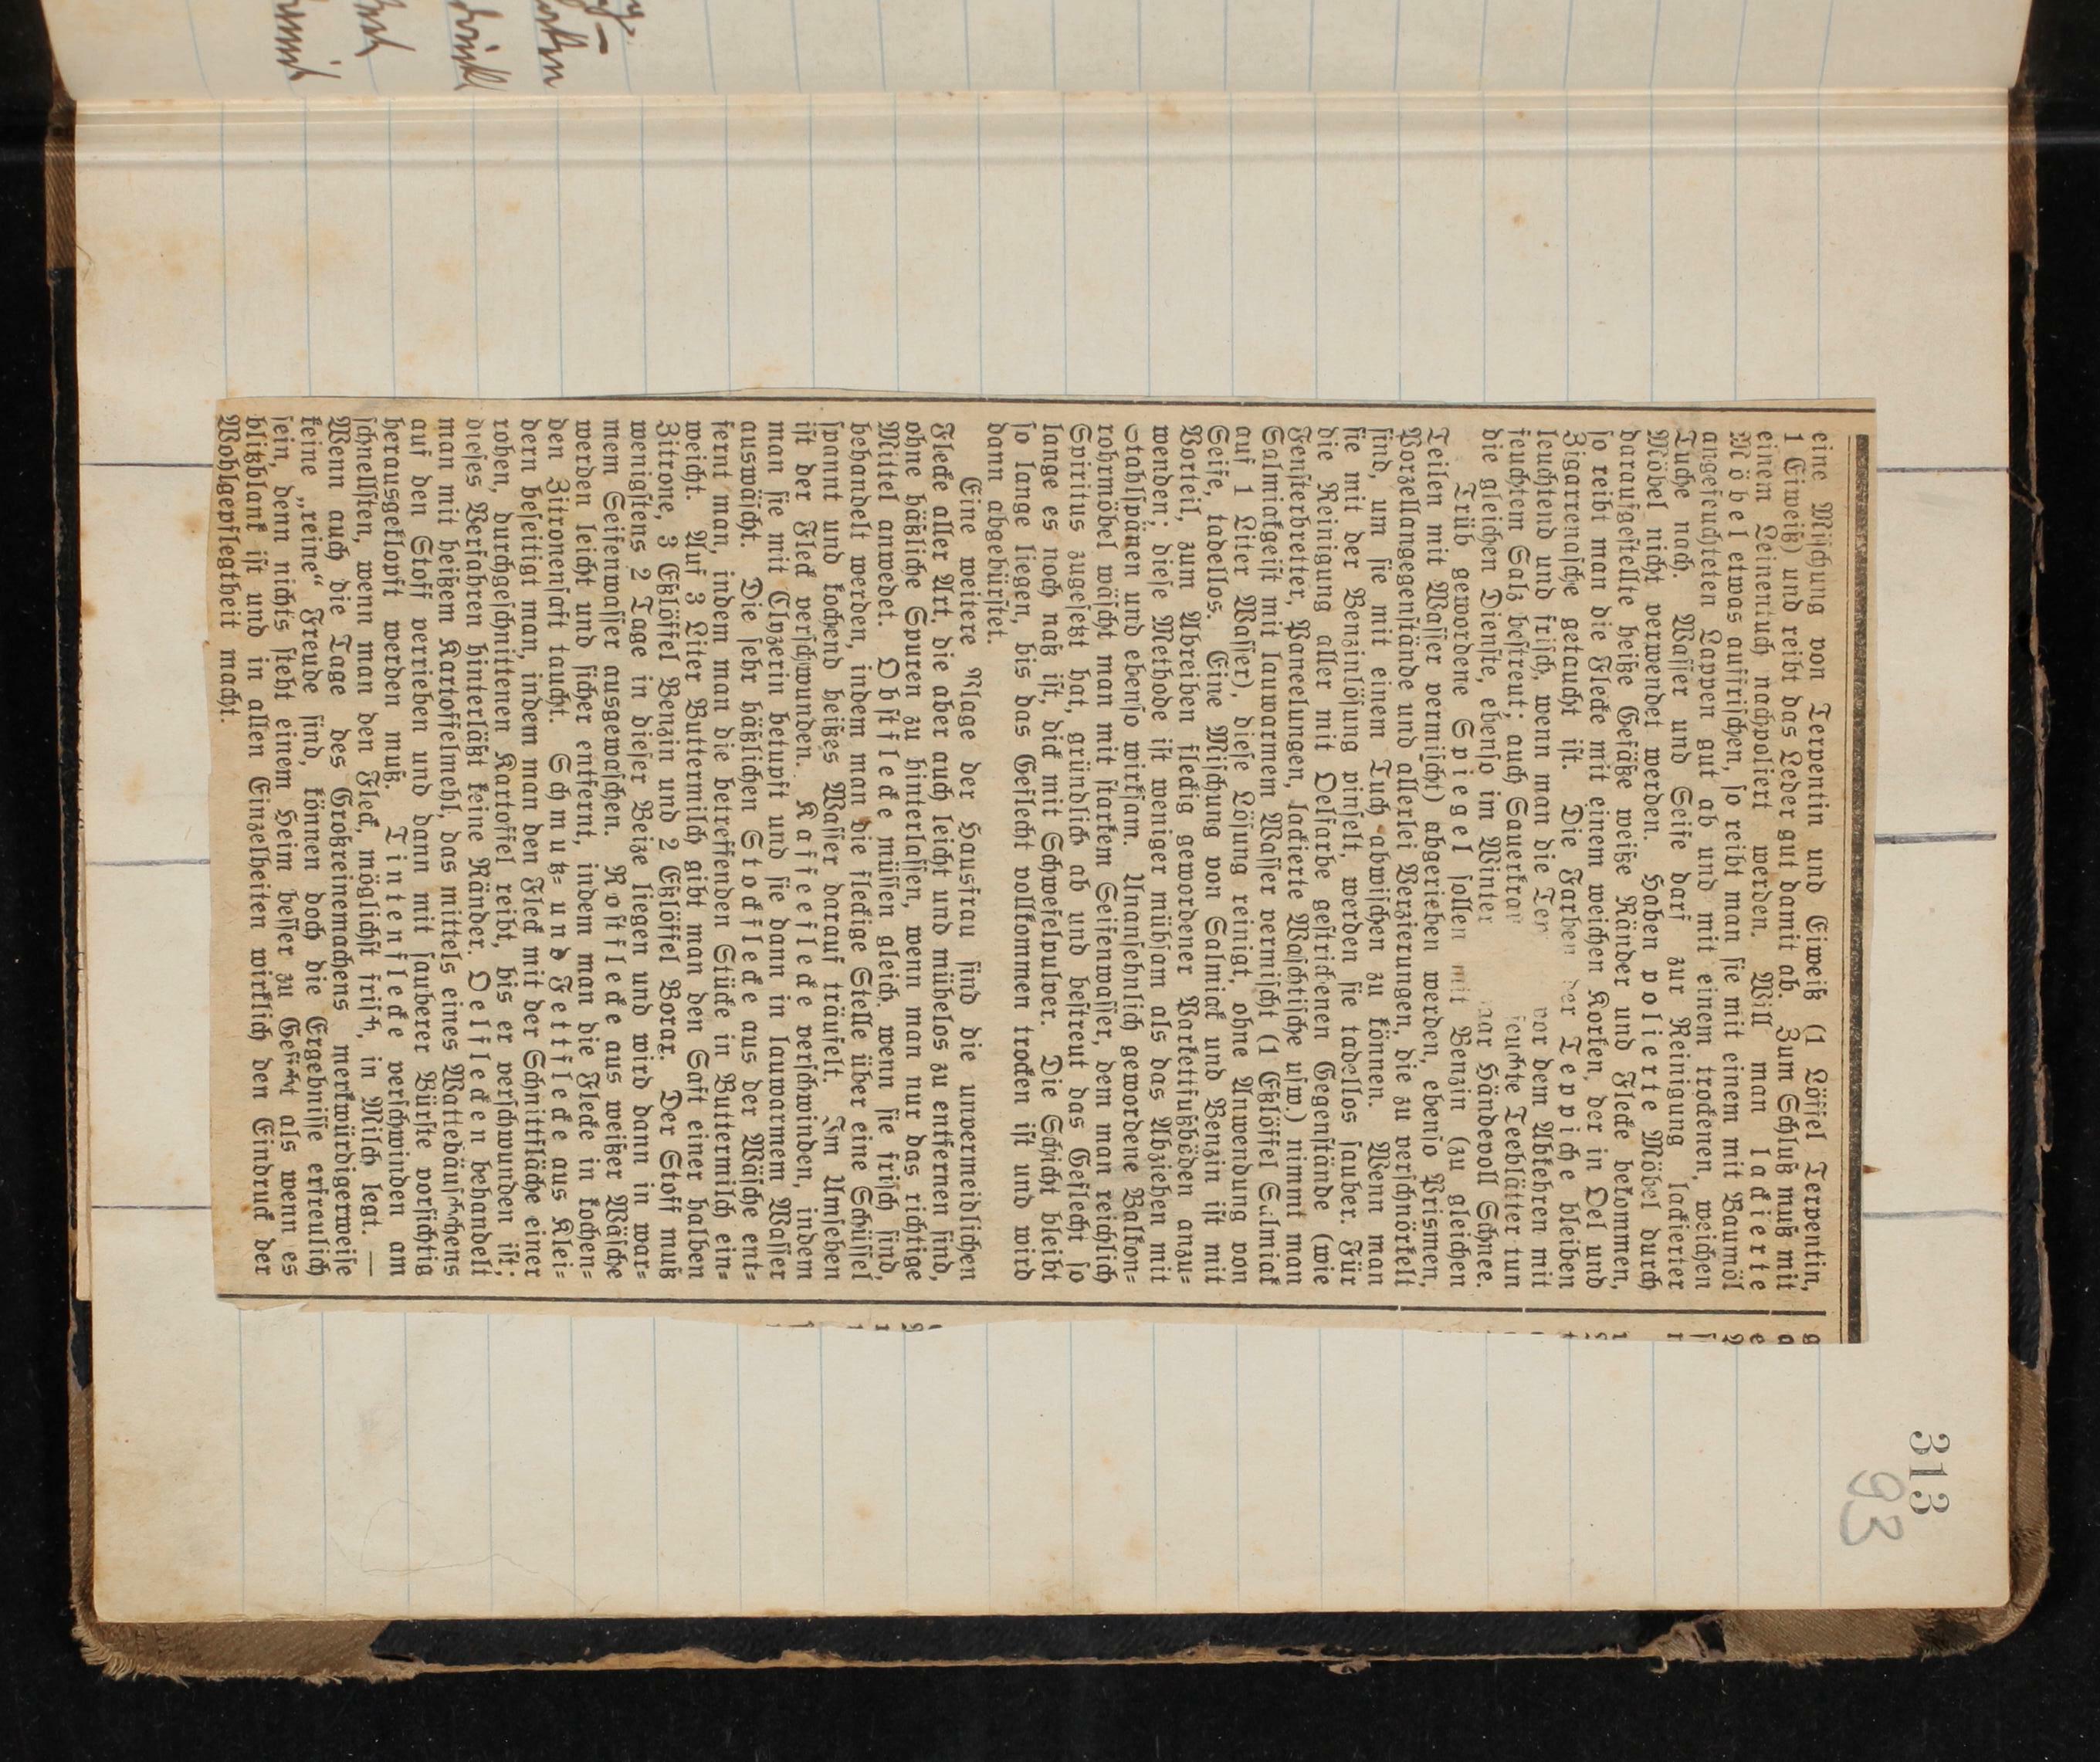 313
93
eine Mischung von Terpentin und Eiweiß (1 Löffel Terpentin,
1 Eiweiß) und reibt das Leder gut damit ab. Zum Schluß muß mit
einem Leinentuch nachpoliert werden. Will man lackierte
Möbel etwas auffrischen, so reibt man sie mit einem mit Baumöl
angefeuchteten Lappen gut ab und mit einem trockenen, weichen
Tuche nach. Wasser und Seife darf zur Reinigung lackierter
Möbel nicht verwendet werden. Haben polierte Möbel durch
daraufgestellte heiße Gefäße weiße Ränder und Flecke bekommen,
so reibt man die Flecke mit einem weichen Korken, der in Oel und
Zigarrenasche getaucht ist. Die Farben der Teppiche bleiben
leuchtend und frisch, wenn man die Tep vor dem Abkehren mit
feuchtem Salz bestreut; auch Sauerkrau feuchte Teeblätter tun
die gleichen Dienste, ebenso im Winter paar Händevoll Schnee.
Trüb gewordene Spiegel sollen mit Benzin (zu gleichen
Teilen mit Wasser vermischt) abgerieben werden, ebenso Prismen,
Porzellangegenstände und allerlei Verzierungen, die zu verschnörkelt
sind, um sie mit einem Tuch abwischen zu können. Wenn man
sie mit der Benzinlösung pinselt, werden sie tadellos sauber. Für
die Reinigung aller mit Oelfarbe gestrichenen Gegenstände (wie
Fensterbretter, Paneelungen, lackierte Waschtische usw.) nimmt man
Salmiakgeist mit lauwarmem Wasser vermischt (1 Eßlöffel Salmiak
auf 1 Liter Wasser), diese Lösung reinigt, ohne Anwendung von
Seife, tadellos. Eine Mischung von Salmiak und Benzin ist mit
Vorteil, zum Abreiben fleckig gewordener Parkettfußböden anzu-
wenden; diese Methode ist weniger mühsam als das Abziehen mit
Stahlspänen und ebenso wirksam. Unansehnlich gewordene Balkon-
rohrmöbel wäscht man mit starkem Seifenwasser, dem man reichlich
Spiritus zugesetzt hat, gründlich ab und bestreut das Geflecht so
lange es noch naß ist, dick mit Schwefelpulver. Die Schicht bleibt
so lange liegen, bis das Geflecht vollkommen trocken ist und wird
dann abgebürstet.
Eine weitere Plage der Hausfrau sind die unvermeidlichen
Flecke aller Art, die aber auch leicht und mühelos zu entfernen sind,
ohne häßliche Spuren zu hinterlassen, wenn man nur das richtige
Mittel anwedet. Obstflecke müssen gleich, wenn sie frisch sind,
behandelt werden, indem man die fleckige Stelle über eine Schüssel
spannt und kochend heißes Wasser darauf träufelt. Im Umsehen
ist der Fleck verschwunden. Kaffeeflecke verschwinden, indem
man sie mit Clyzerin betupft und sie dann in lauwarmem Wasser
auswäscht. Die sehr häßlichen Stockflecke aus der Wäsche ent-
fernt man, indem man die betreffenden Stücke in Buttermilch ein-
weicht. Auf 3 Liter Buttermilch gibt man den Saft einer halben
Zitrone, 3 Eßlöffel Benzin und 2 Eßlöffel Borax. Der Stoff muß
wenigstens 2 Tage in dieser Beize liegen und wird dann in war-
mem Seifenwasser ausgewaschen. Rostflecke aus weißer Wäsche
werden leicht und sicher entfernt, indem man die Flecke in kochen-
den Zitronensaft taucht. Schmutz- und Fettflecke aus Klei-
dern beseitigt man, indem man den Fleck mit der Schnittfläche einer
rohen, durchgeschnittenen Kartoffel reibt, bis er verschwunden ist;
dieses Verfahren hinterläßt keine Ränder. Oelflecken behandelt
man mit heißem Kartoffelmehl, das mittels eines Wattebäuschchens
auf den Stoff verrieben und dann mit sauberer Bürste vorsichtig
herausgeklopft werden muß. Tintenflecke verschwinden am
schnellsten, wenn man den Fleck, möglichst frisch, in Milch legt. —
Wenn auch die Tage des Großreinemachens merkwürdigerweise
keine „reine“ Freude sind, können doch die Ergebnisse erfreulich
sein, denn nichts steht einem Heim besser zu Gesicht als wenn es
blitzblank ist und in allen Einzelheiten wirklich den Eindruck der
Wohlgepflegtheit macht.